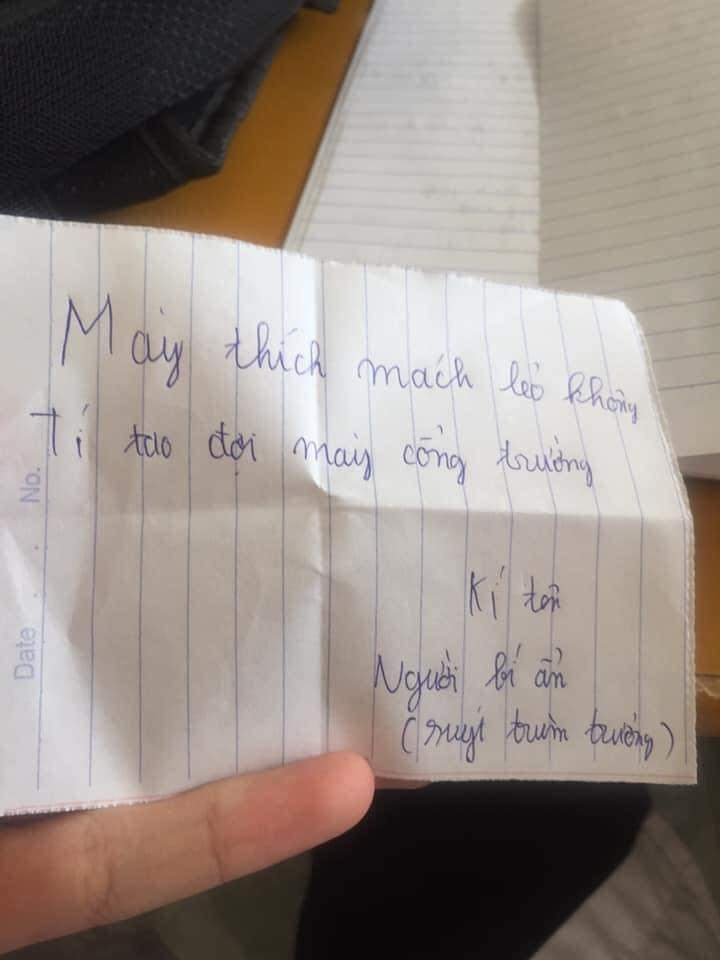 Mày thích mách lẻo không
Tí tao đợi mày cổng trường
Kí tên
Người bí ẩn
(suyt trùm trường)
No.
Date . .